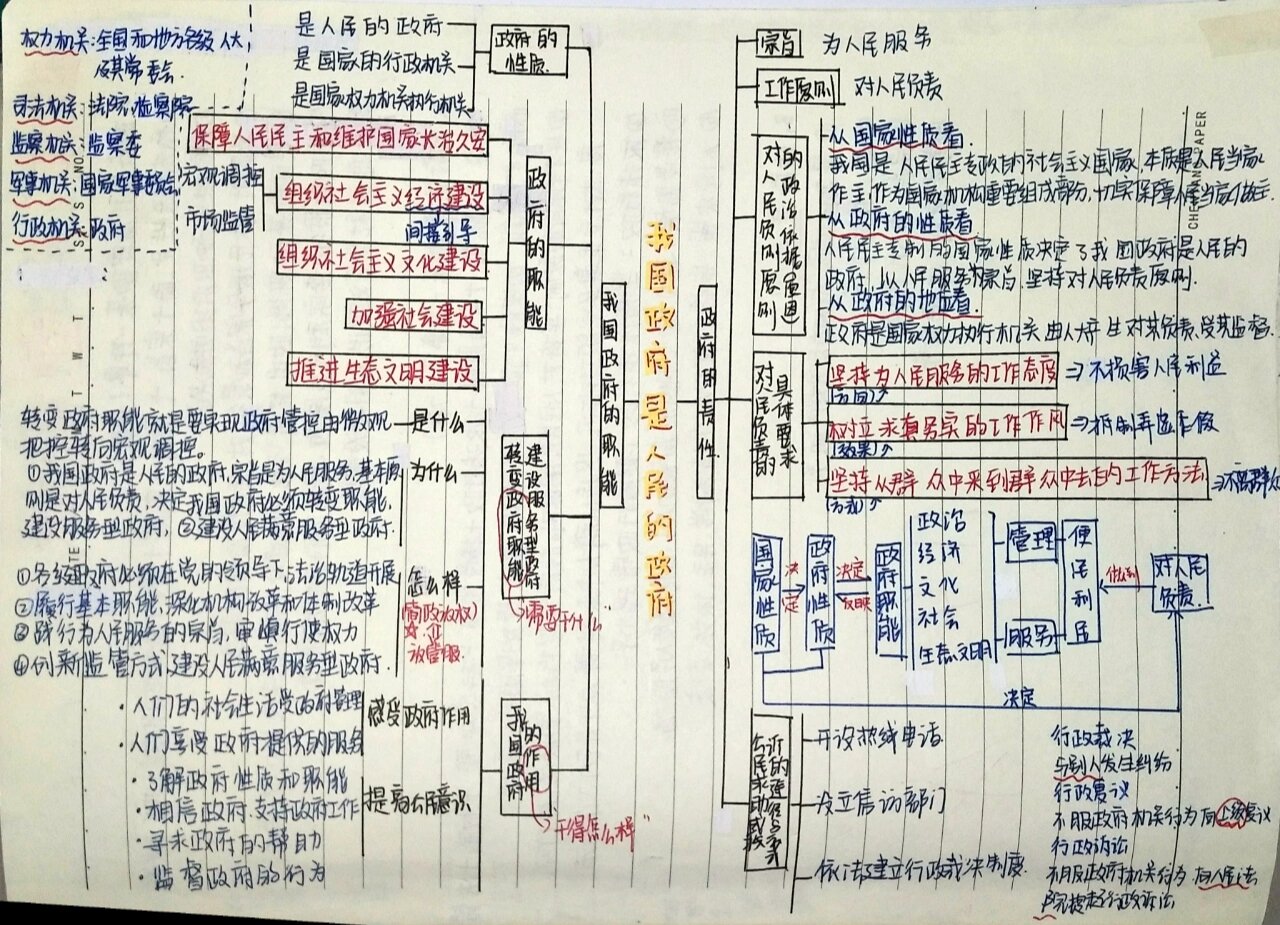 权力机关：全国和地方各级人大
及其常委会
司法机关：法院、检察院
监察机关：监察委
军事机关：国家军事委员会
行政机关：政府
是人民的政府
是国家的行政机关
是国家权力机关执行机关
政府的
性质
保障人民民主和维护国家长治久安
宏观调控
市场监管
组织社会主义经济建设
间接引导
组织社会主义文化建设
加强社会建设
推进生态文明建设
政府的职能
我国政府的职能
转变政府职能就是要实现政府管控由微观
把控转向宏观调控。
是什么
①我国政府是人民的政府，宗旨是为人民服务，基本原
则是对人民负责，决定我国政府必须转变职能，
建设服务型政府，②建设人民满意服务型政府.
为什么
①各级政府必须在党的领导下、法治轨道开展
②履行基本职能，深化机构改革和体制改革
③践行为人民服务的宗旨，审慎行使权力
④创新监管方式，建设人民满意服务型政府.
怎么样
(简政放权)
放管服.
建设服务型政府
转变政府职能
"需要干什么"
·人们的社会生活受政府管理
·人们享受政府提供的服务
感受政府作用
·了解政府性质和职能
·相信政府.支持政府工作
·寻求政府的帮助
·监督政府的行为
提高公民意识
我国政府
的作用
"干得怎么样"
我国政府是人民的政府
政府的责任
宗旨
为人民服务
工作原则
对人民负责
对人民负责原则
的政治依据/原因
从国家性质看.
我国是人民民主专政的社会主义国家，本质是人民当家
作主，作为国家机构重要组成部分，切实保障人民当家做主.
从政府的性质看
人民民主专制的国家性质决定了我国政府是人民的
政府，以人民服务为宗旨，坚持对人民负责原则.
从政府的地位看.
政府是国家权力执行机关由人大产生对其负责、受其监督.
对人民负责的
具体要求
坚持为人民服务的工作态度
⇒不损害人民利益
(方向)↗
树立求真务实的工作作风
⇒抵制弄虚作假
(效果)↗
坚持从群众中来到群众中去的工作方法
⇒不离群众
国家性质
决定
政府性质
决定
反映
政府职能
政治
经济
文化
社会
生态文明
管理
服务
便民利民
做到
对人民
负责.
决定
公民求助或投
诉的途径与方案
开设热线电话
设立信访部门
依法建立行政裁决制度.
行政裁决
与别人发生纠纷
行政复议
不服政府机关行为向上级复议
行政诉讼
不服政府机关行为.向人民法
院提起行政诉讼